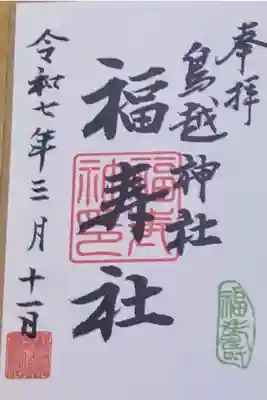 奉拝
鳥越神社
福寿社
令和七年三月十一日